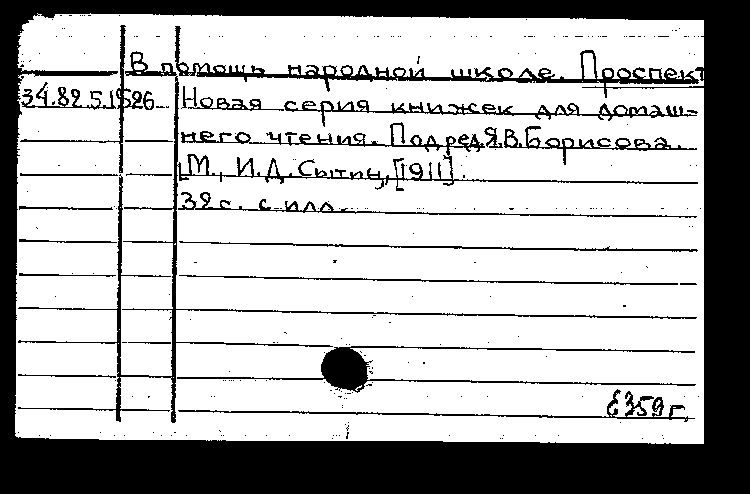 В помощь народной школе. Проспект
34.82.5.1526 Новая серия книжек для домаш-
него чтения. Под ред. Я.В. Борисова.
[М., И.Д. Сытин, [1911].
32 с. с илл.
Е359г.